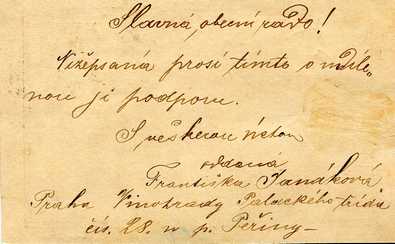 Slavná obecní rado!
Nížepsaná prosí tímto o uděle-
nou jí podporu.
S veškerou úctou
oddaná
Františka Janáková
Praha Vinohrady Palackého třída
čís. 28. u p. Peřiny